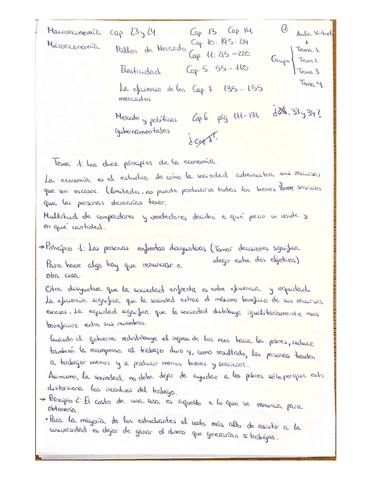 Macroeconomía cap. 23 y 24 Cap 13 Cap 14
Microeconomía Fallos de Mercado Cap. 10: 195-214
Cap 11: 215-220
Elasticidad Cap. 5. 55 - 110
La eficiencia de los Cap 7 135 - 155
mercados
Mercado y políticas Cap 6 pág 111-134
gubernamentales
Aula Virtual
Grupo Tema 1
Tema 2
Tema 3
Tema 4
Tema 1: Los diez principios de la economía
La economía es el estudio de cómo la sociedad administra sus recursos
que son escasos. (limitados, no puede producirse todos los bienes servicios
que las personas desearían tener.
Multitud de compradores y vendedores deciden a qué precio se vende y
en qué cantidad.
→ Principio 1: Las personas enfrentan disyuntivas (Tomar decisiones significa
elegir entre dos objetivos)
Para hacer algo hay que renunciar a
otra cosa.
Otra disyuntiva que la sociedad enfrenta es entre eficiencia y equidad.
La eficiencia significa que la sociedad extrae el máximo beneficio de sus recursos
escasos. La equidad significa que la sociedad distribuye igualitariamente esos
beneficios entre sus miembros.
Cuando el gobierno redistribuye el ingreso de los ricos hacia los pobres, reduce
también la recompensa al trabajo duro y, como resultado, las personas tienden
a trabajar menos y a producir menos bienes y servicios.
Asimismo, la sociedad no debe dejar de ayudar a los pobres sólo porque esto
distorsiona los incentivos del trabajo.
→ Principio 2: El costo de una cosa es aquello a lo que se renuncia para
obtenerla
• Para la mayoría de los estudiantes el costo más alto de asistir a la
universidad es dejar de ganar el dinero que generarían si trabajan.